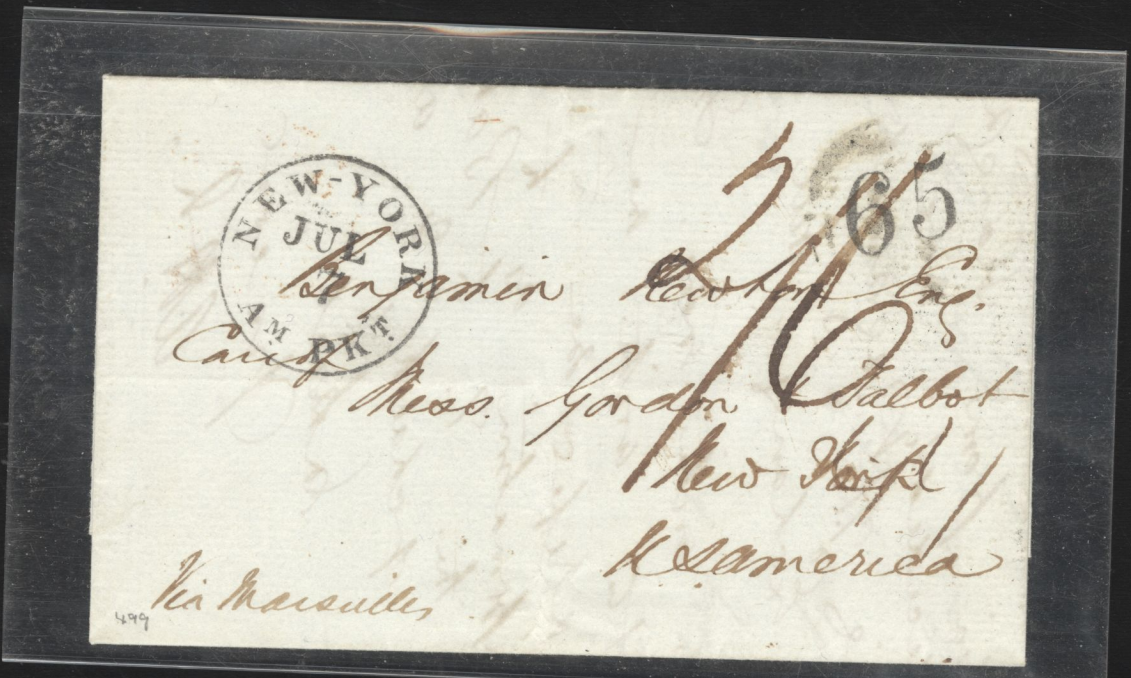 NEW-YORK
JUL
7
AM PKT.
65
Benjamin Newton Esq.
Care of
Mess. Gordon & Talbot
New York
U S America
Via Marseilles
499